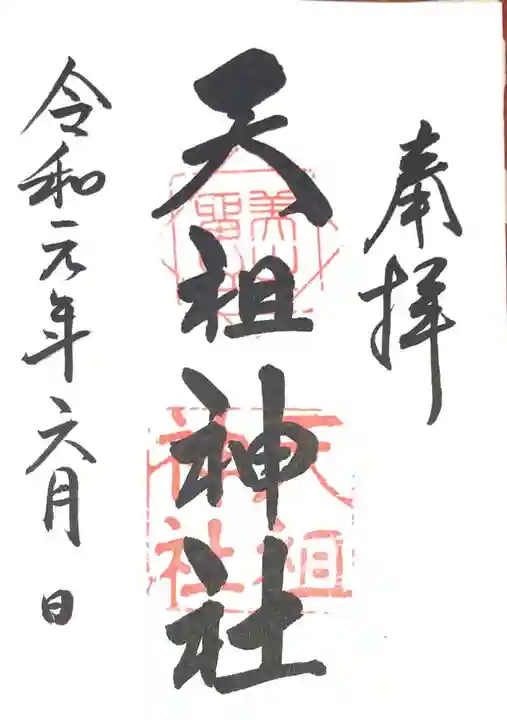 奉拝
天祖神社
令和元年六月 日
天祖
神社